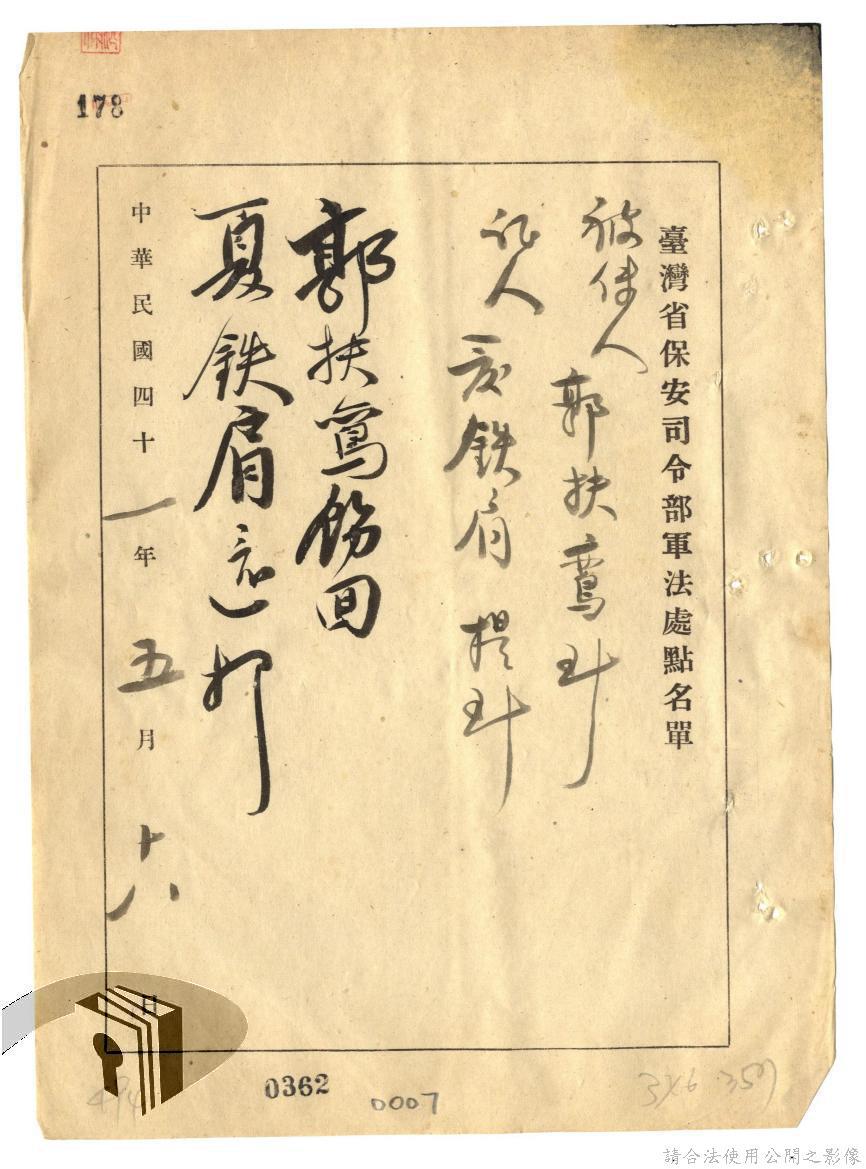 178
臺灣省保安司令部軍法處點名單
被傳人 郭扶鸞 到
証人 夏鉄肩 提到
郭扶鸞飭回
夏鉄肩還押
中華民國四十一年五月十八日
0362
0007
請合法使用公開之影像